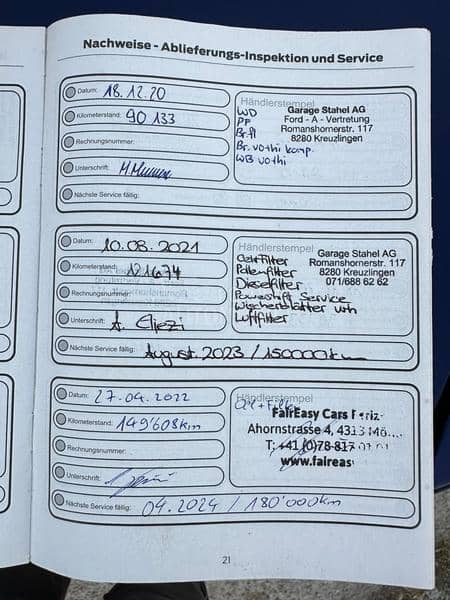 Nachweise - Ablieferungs-Inspektion und Service
Datum: 18.12.20
Kilometerstand: 90 133
Rechnungsnummer:
Unterschrift:
Nächste Service fällig:
Händlerstempel
WD
PP
Br.fl
Br. vothi komp.
WB vothi
Garage Stahel AG
Ford - A - Vertretung
Romanshornerstr. 117
8280 Kreuzlingen
Datum: 10.08.2021
Kilometerstand: 121674
Rechnungsnummer:
Unterschrift:
Nächste Service fällig: August 2023 / 150000km
Händlerstempel
Oel+Filter
Pollenfilter
Dieselfilter
Powershift Service
Wischerblätter
Luftfilter
Garage Stahel AG
Romanshornerstr. 117
8280 Kreuzlingen
071/688 62 62
Datum: 27.04.2022
Kilometerstand: 149'608km
Rechnungsnummer:
Unterschrift:
Nächste Service fällig: 04.2024 / 180'000km
Händlerstempel
FairEasy Cars
Ahornstrasse 4, 4313
T: +41 (0)78-817
21